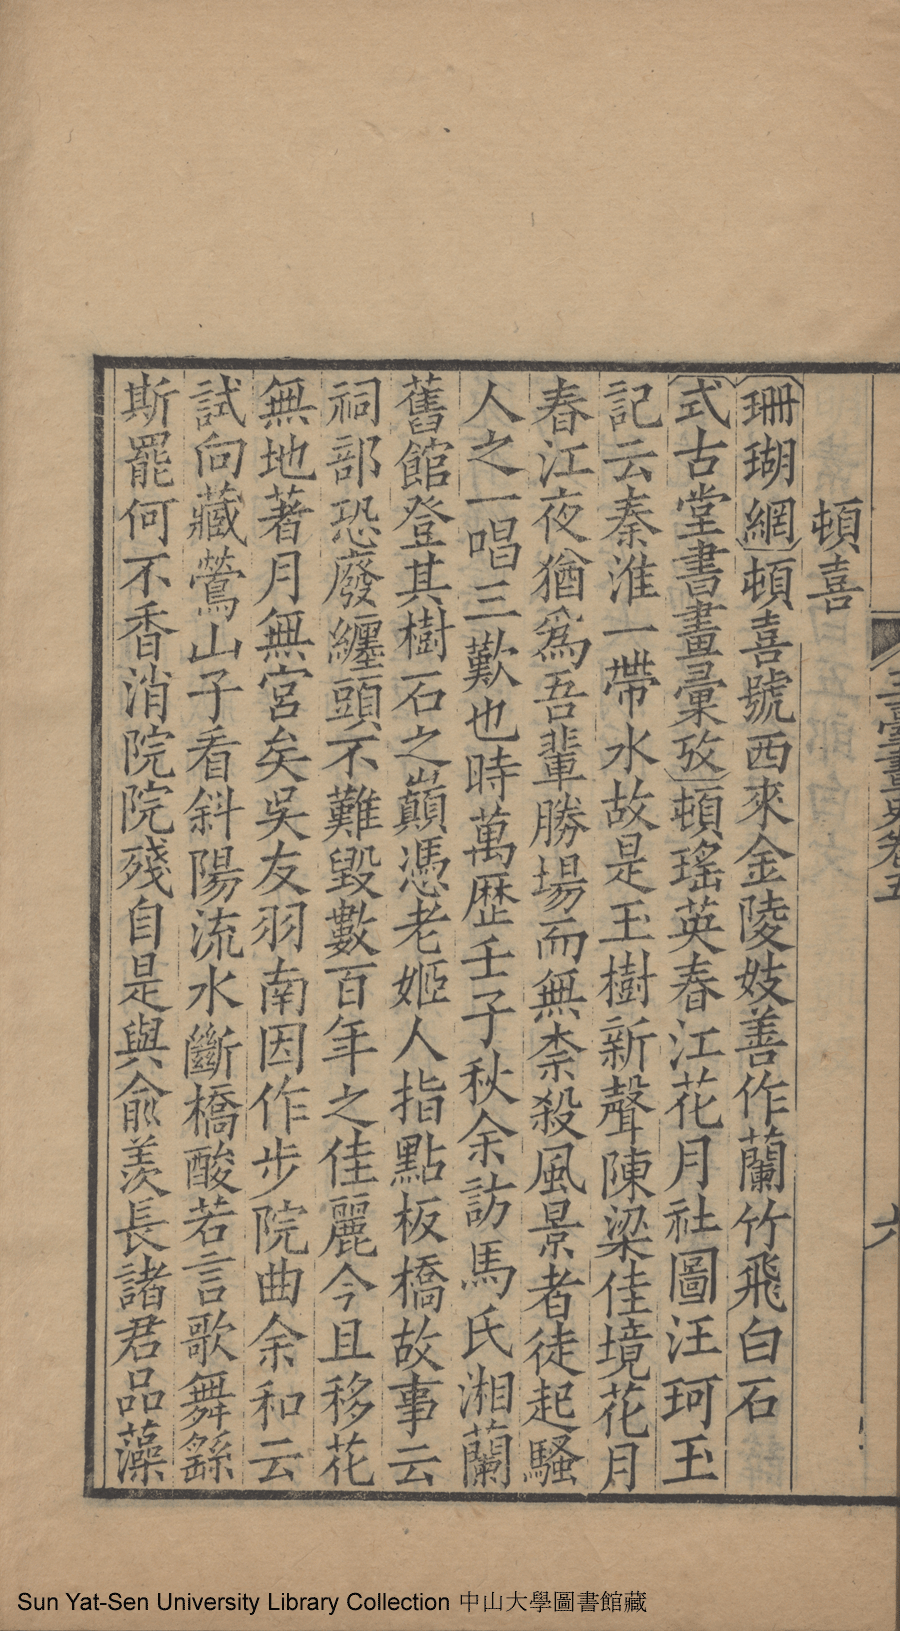 頓喜
珊瑚網頓喜號西來金陵妓善作蘭竹飛白石
式古堂書畫彙攷頓瑤英春江花月社圖汪珂玉
記云秦淮一帶水故是玉樹新聲陳梁佳境花月
春江夜猶為吾輩勝場而無柰殺風景者徒起騷
人之一唱三歎也時萬歷壬子秋余訪馬氏湘蘭
舊館登其樹石之巔憑老姬人指點板橋故事云
祠部恐廢纏頭不難毀數百年之佳麗今且移花
無地著月無宮矣吳友羽南因作步院曲余和云
試向藏鶯山子看斜陽流水斷橋酸若言歌舞繇
斯罷何不香消院院殘自是與俞羨長諸君品藻
玉臺畫史卷五
六
Sun Yat-Sen University Library Collection 中山大學圖書館藏